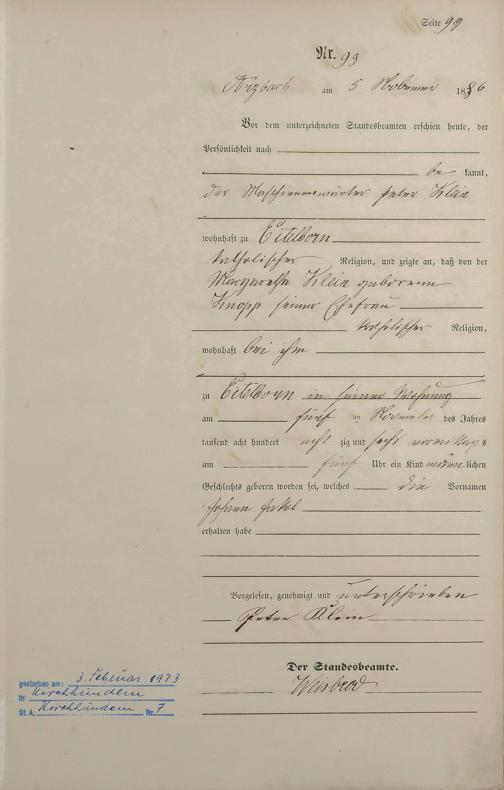 Seite 99
Nr. 99
Arzbach am 5 November 1886
Vor dem unterzeichneten Standesbeamten erschien heute, der
Persönlichkeit nach
be kannt,
der Maschinenwärter Peter Klein
wohnhaft zu Eitelborn
katholischer Religion, und zeigte an, daß von der
Margaretha Klein geborenen
Knopp seiner Ehefrau
katholischer Religion,
wohnhaft bei ihm
zu Eitelborn in seiner Wohnung
am fünf ten November des Jahres
tausend acht hundert acht zig und sechs vormittags
um fünf Uhr ein Kind männlichen
Geschlechts geboren worden sei, welches die Vornamen
Johann Jakob
erhalten habe
Vorgelesen, genehmigt und unterschrieben
Peter Klein
Der Standesbeamte.
Weisbrod
gestorben am: 3. Februar 1973
in Kirchhundem
St. A. Kirchhundem Nr. 7